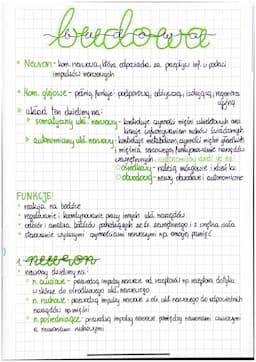 budowa
• Neuron - kom. nerwowa, która odpowiada za przepływ inf. w postaci
impulsów nerwowych
• Kom. glejowe - pełnią funkcje: podporową, odżywczą, izolującą, regenera
cyjną
• układ ten dzielimy na:
• somatyczny ukł. nerwowy - kontroluje czynności mięśni szkieletowych oraz
kieruje wykonywaniem ruchów świadomych
• autonomiczny ukł. nerwowy - kontroluje metabolizm, czynności mięśni gładkich
i mięśnia sercowego, funkcjonowanie narządów
wewnętrznych, autonomiczny dzieli się na:
ośrodkowy - należą mózgowie i rdzeń kr.
obwodowy - nerwy obwodowe i autonomiczne
FUNKCJE:
• reakcja na bodźce
• regulowanie i koordynowanie pracy innych ukł. narządów
• odbiór i analiza bodźców pochodzących ze śr. zewnętrznego i z wnętrza ciała
• sterowanie wyższymi czynnościami nerwowymi np. emocje, pamięć
neuron
• neurony dzielimy na:
• n. czuciowe - przewodzą impulsy nerwowe od receptorów np. receptora dotyku
w skórze do ośrodkowego ukł. nerwowego
• n. ruchowe - przewodzą impulsy nerwowe z ukł. nerwowego do odpowiednich
narządów np. mięśni
• n. pośredniczące - przewodzą impulsy nerwowe pomiędzy neuronami czuciowymi
a neuronami ruchowymi